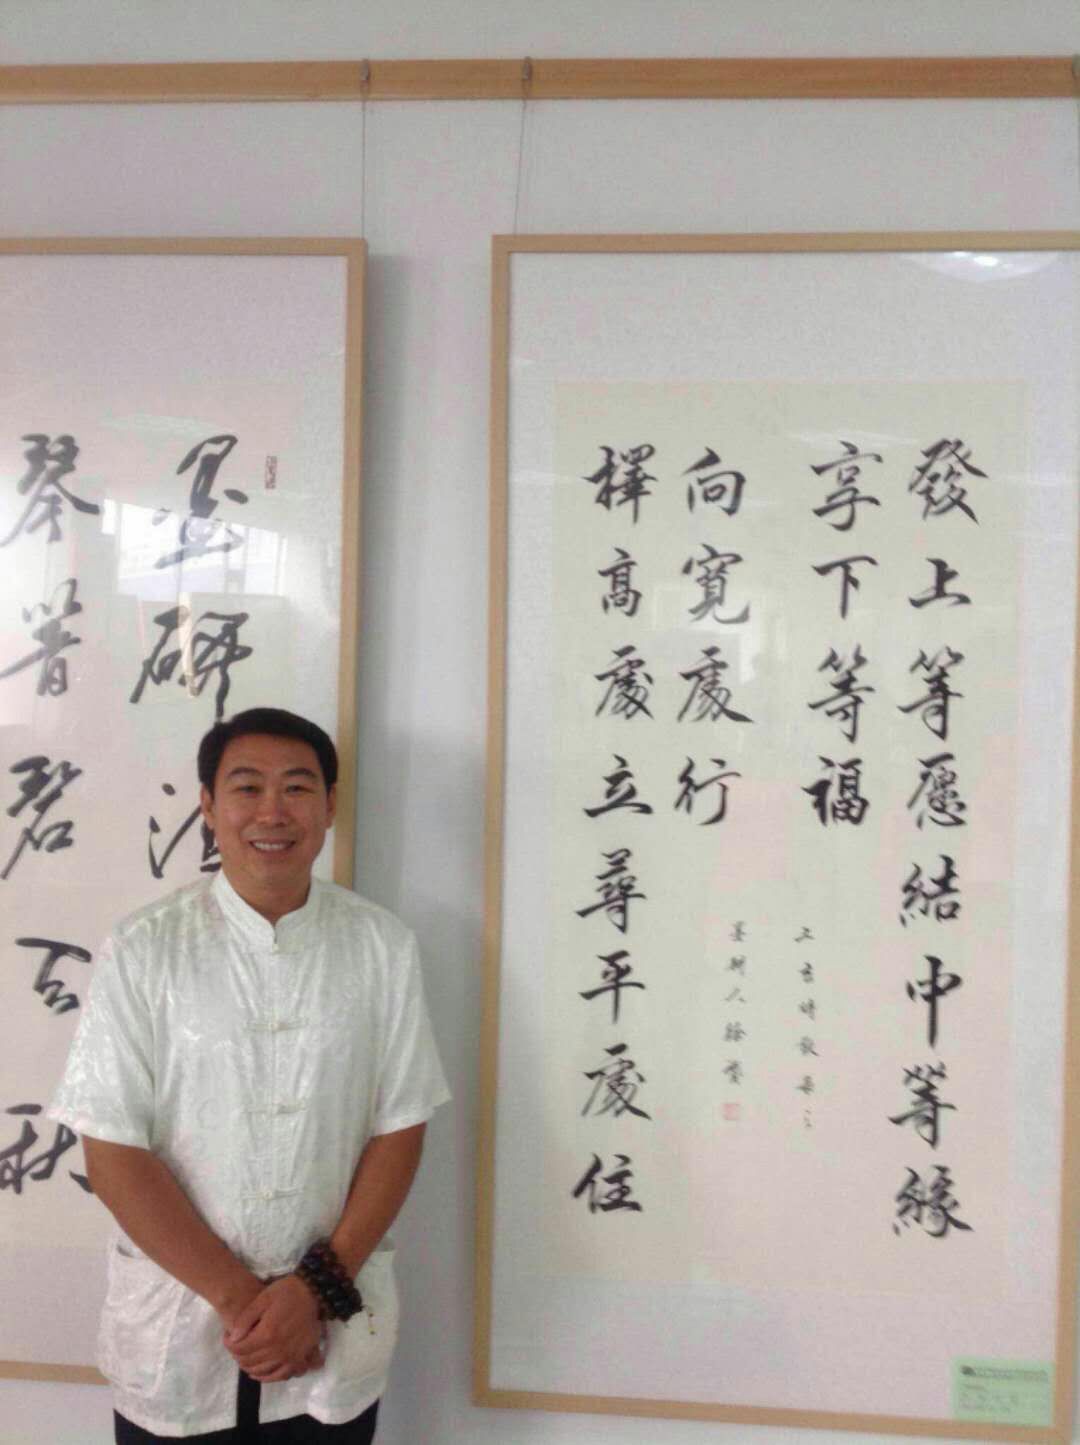 發上等愿結中等緣
享下等福
向寬處行
擇高處立尋平處住
墨耕人徐
墨研
琴 碧 秋